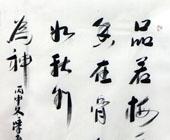 品若梅
香在骨
如秋水
為神
丙申冬